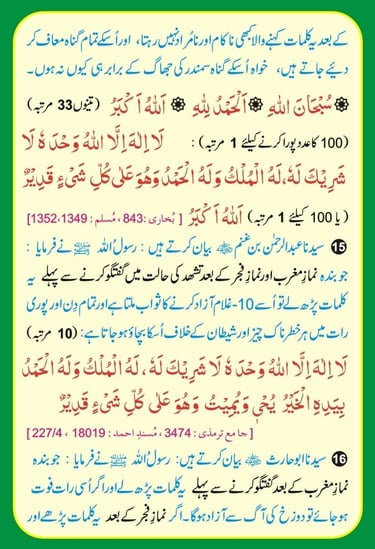 کے بعد یہ کلمات کہنے والا کبھی ناکام اور نامُراد نہیں رہتا، اور اُسکے تمام گناہ معاف کر
دیئے جاتے ہیں، خواہ اُسکے گناہ سمندر کی جھاگ کے برابر ہی کیوں نہ ہوں۔
سُبْحَانَ اللهِ ۞ اَلْحَمْدُ لِلّٰهِ ۞ اَللهُ اَكْبَرُ (تینوں 33 مرتبہ)
(100 کا عدد پورا کرنے کیلئے 1 مرتبہ) : لَا اِلٰهَ اِلَّا اللهُ وَحْدَهٗ لَا
شَرِيْكَ لَهٗ، لَهُ الْمُلْكُ وَلَهُ الْحَمْدُ وَهُوَ عَلٰى كُلِّ شَىْءٍ قَدِيْرٌ
(یا 100 کیلئے 1 مرتبہ) اَللهُ اَكْبَرُ [ بُخاری : 843، مُسلم : 1349، 1352]
⓯ سیدنا عبدالرحمٰن بن غنم ؓ بیان کرتے ہیں : رسولُ الله ﷺ نے فرمایا :
جو بندہ نمازِ مغرب اور نمازِ فجر کے بعد تشھد کی حالت میں گفتگو کرنے سے پہلے یہ
کلمات پڑھ لے تو اُسے 10-غلام آزاد کرنے کا ثواب ملتا ہے اور تمام دِن اور پوری
رات میں ہر خطرناک چیز اور شیطان کے خلاف اُسکا بچاؤ ہو جاتا ہے : (10 مرتبہ)
لَا اِلٰهَ اِلَّا اللهُ وَحْدَهٗ لَا شَرِيْكَ لَهٗ، لَهُ الْمُلْكُ وَلَهُ الْحَمْدُ
بِيَدِهِ الْخَيْرُ يُحْيٖ وَيُمِيْتُ وَهُوَ عَلٰى كُلِّ شَىْءٍ قَدِيْرٌ
[ جامع ترمذی : 3474، مُسندِ احمد : 18019 ، 227/4 ]
⓰ سیدنا ابو حارث ؓ بیان کرتے ہیں: رسولُ الله ﷺ نے فرمایا : جو بندہ
نمازِ مغرب کے بعد گفتگو کرنے سے پہلے یہ کلمات پڑھ لے اور اگر اُسی رات فوت
ہو جائے تو دوزخ کی آگ سے آزاد ہوگا۔ اگر نمازِ فجر کے بعد یہ کلمات پڑھے اور